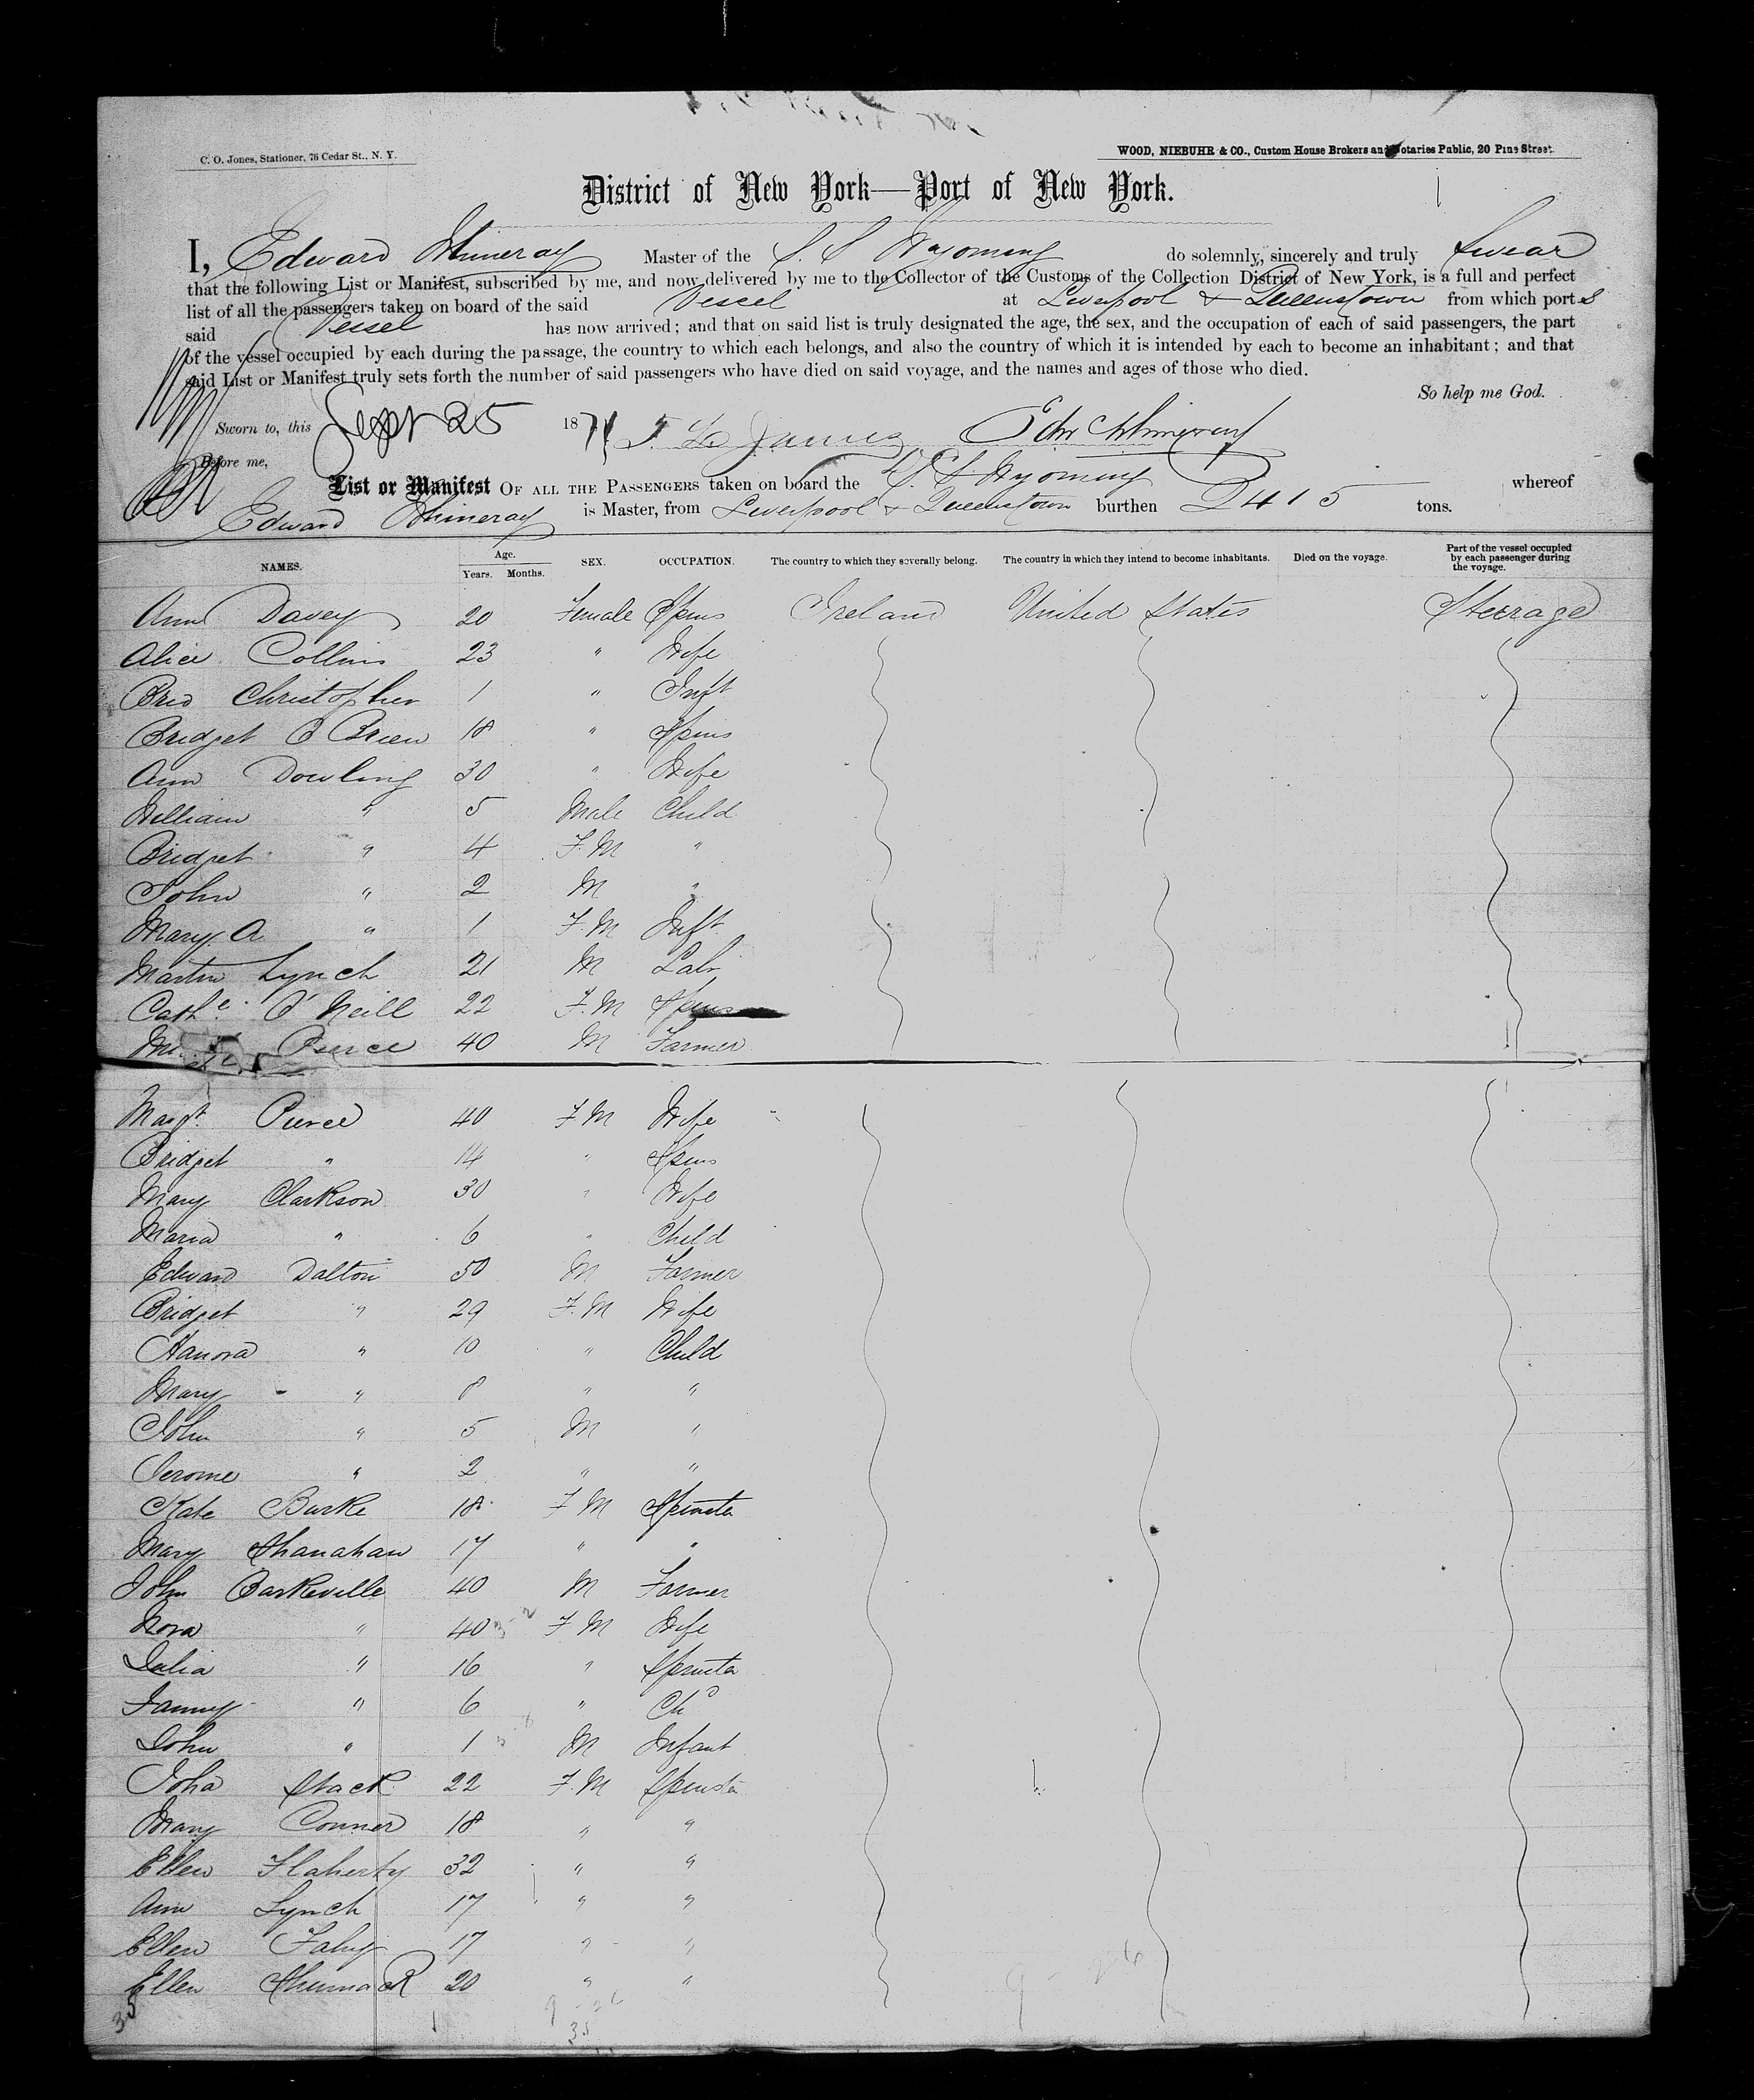 C. O. Jones, Stationer, 76 Cedar St., N. Y.
WOOD, NIEBUHR & CO., Custom House Brokers and Notaries Public, 20 Pine Street.
District of New York—Port of New York.
I, Edward Master of the S. S. Wyoming do solemnly, sincerely and truly Swear
that the following List or Manifest, subscribed by me, and now delivered by me to the Collector of the Customs of the Collection District of New York, is a full and perfect
list of all the passengers taken on board of the said Vessel at Liverpool & Queenstown from which port s
said Vessel has now arrived; and that on said list is truly designated the age, the sex, and the occupation of each of said passengers, the part
of the vessel occupied by each during the passage, the country to which each belongs, and also the country of which it is intended by each to become an inhabitant; and that
said List or Manifest truly sets forth the number of said passengers who have died on said voyage, and the names and ages of those who died.
So help me God.
Sworn to, this Sept 25 1871
Before me,
List or Manifest OF ALL THE PASSENGERS taken on board the S. S. Wyoming whereof
Edward is Master, from Liverpool & Queenstown burthen 2415 tons.
NAMES. Age. Years. Months. SEX. OCCUPATION. The country to which they severally belong. The country in which they intend to become inhabitants. Died on the voyage. Part of the vessel occupied by each passenger during the voyage.
Ann Davey 20 Female Spins Ireland United States Steerage
Alice Collins 23 " Wife
Brid Christopher 1 " Inft
Bridget O Brien 18 " Spins
Ann Dowling 30 " Wife
William " 5 Male Child
Bridget " 4 F. M "
John " 2 M "
Mary. A " 1 F. M Inft.
Martin Lynch 21 M Labr
Cathe. O'Neill 22 F. M Spins
Pierce 40 M Farmer
Margt. Pierce 40 F M Wife
Bridget " 14 " Spins
Mary Clarkson 30 " Wife
Maria " 6 " Child
Edward Dalton 50 M Farmer
Bridget " 29 F. M Wife
Hanora " 10 " Child
Mary " 8 " "
John " 5 M "
Jerome " 2 " "
Kate Burke 18 F M Spinsta
Mary Shanahan 17 " "
John Baskeville 40 M Farmer
Nora " 40 F M Wife
Julia " 16 " Spinsta
Fanny " 6 " Chd
John " 1 M Infant
Joha Stack 22 F. M Spinsta
Mary Conner 18 " "
Ellen Flaherty 32 " "
Ann Lynch 17 " "
Ellen Fahy 17 " "
Ellen 20 " "
35
35